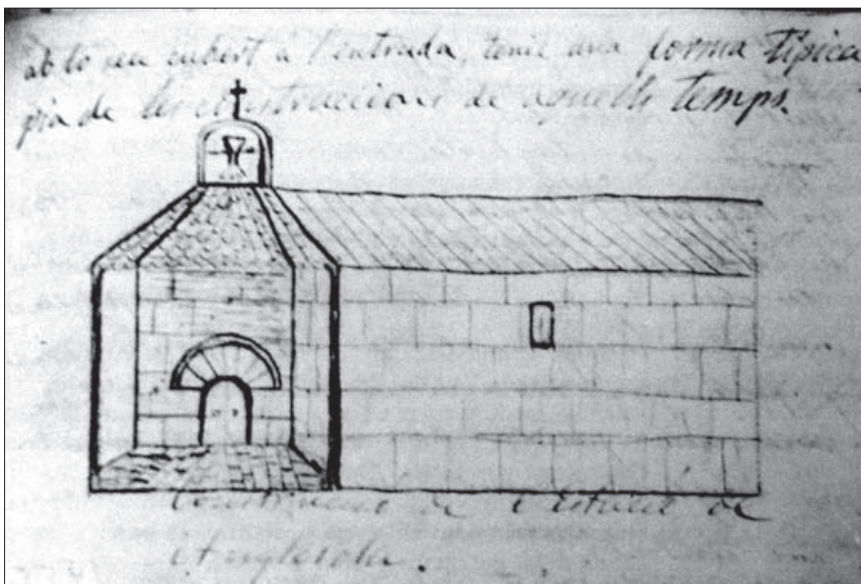 ab lo seu cubert a l'entrada, tenie una forma típica
de les construccions de aquells temps.
de l'estucio de
Anglesola.